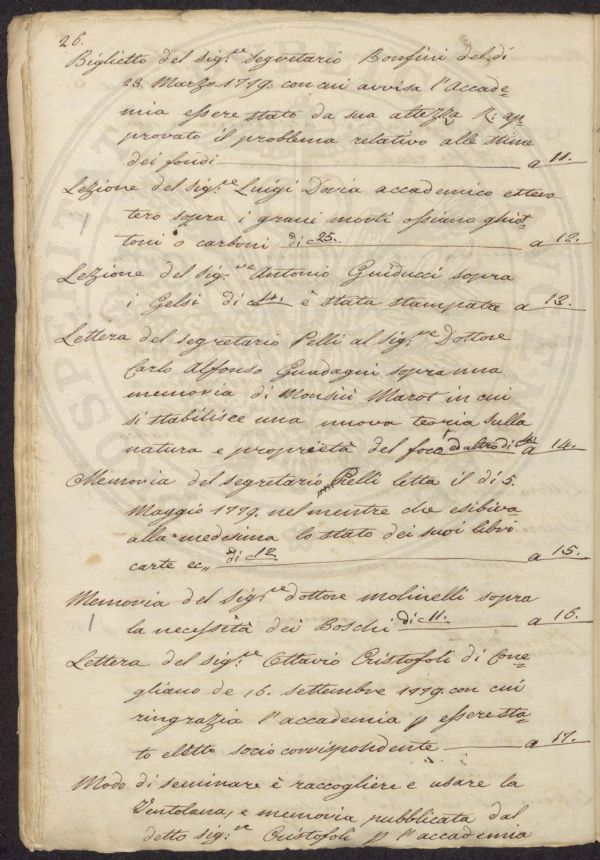 26.
Biglietto del sig.re Segretario Bonfini del dì
23. Marzo 1779. con cui avvisa l'Accade=
mia essere stato da sua altezza R: ap
provato il problema relativo alle stime
dei fondi a 11.
Lezione del sig.re Luigi Doria accademico
tero sopra i grani morti ossiano ghiot=
toni o carboni di c 25. a 12.
Lezione del sig.re Antonio Guiducci sopra
i Gelsi di c 4. è stata stampata a 13.
Lettera del segretario Pelli al sig.re Dottore
Carlo Alfonso Guadagni sopra una
memoria di Monsiù Marat in cui
si stabilisce una nuova teoria sulla
natura e proprietà del foco a 14.
Memoria del segretario Pelli letta il dì 5.
Maggio 1779. nel mentre che esibiva
alla medesima lo stato dei suoi libri
carte ec,, di c 12 a 15.
Memoria del sig.re dottore Molinelli sopra
la necessità dei Boschi di c 11. a 16.
Lettera del sig.re Ottavio Cristofoli di Cone=
gliano de 16. settembre 1779. con cui
ringrazia l'accademia p essere sta=
to eletto socio corrispondente a 17.
Modo di seminare è raccogliere e usare la
Ventolana, e memoria pubblicata dal
detto sig.re Cristofoli p l'accademia